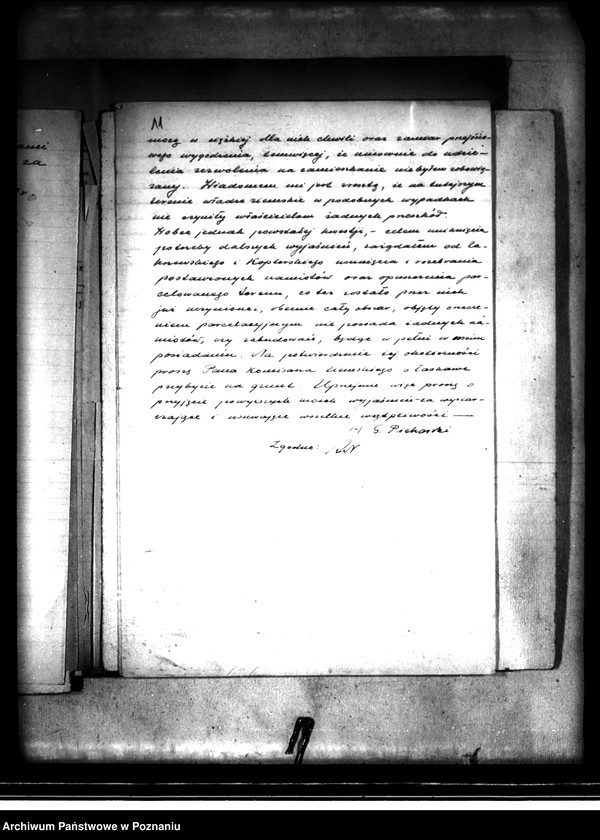 11
mocą w ciężkiej dla nich chwili oraz zamiar
wego wygodzenia, temwięcej, że umownie do udzie-
lenia zezwolenia na zamieszkanie nie byłem obowią-
zany. Wiadomem mi jest zresztą, że na tutejszym
terenie władze ziemskie w podobnych wypadkach
nie czyniły właścicielom żadnych przeszkód.
Wobec jednak powstałej kwestji, - celem uniknięcia
potrzeby dalszych wyjaśnień, zażądałem od
i Koptorskiego usunięcia i rozebrania
postawionych namiotów oraz opuszczenia par-
celowanego terenu, co też zostało przez nich
już uczynione, obecnie cały obszar, objęty
niem parcelacyjnym nie posiada żadnych na-
miotów, czy zabudowań, będąc w pełni w moim
posiadaniu. Na potwierdzenie tej okoliczności
proszę Pana Komisarza Ziemskiego o łaskawe
przybycie na grunt. Uprzejmie więc proszę o
przyjęcie powyższych moich wyjaśnień za wyczer-
pujące i usuwające wszelkie wątpliwości —
/-/ G. Piekarski
Zgodne:
Archiwum Państwowe w Poznaniu